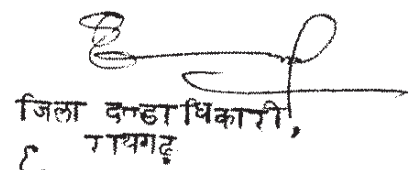 जिला दण्डाधिकारी,
रायगढ़